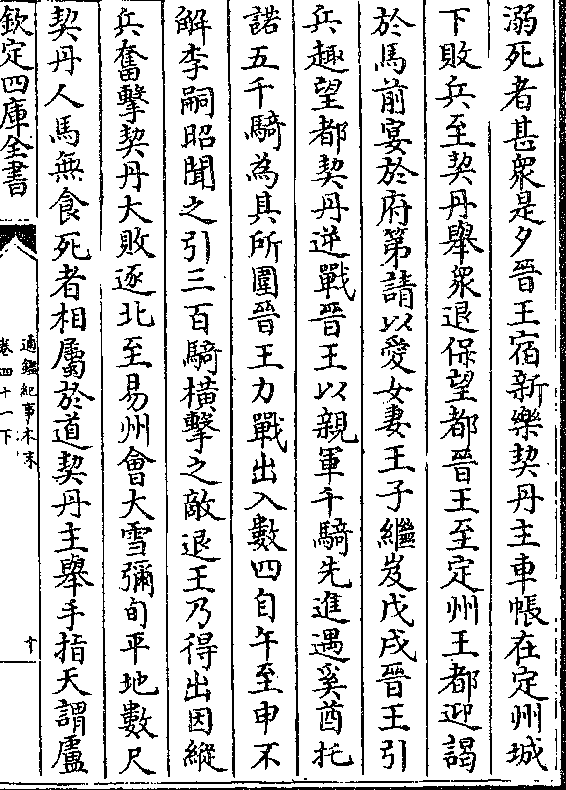 溺死者甚衆是夕晉王宿新樂契丹主車帳在定州城
下敗兵至契丹舉衆退保望都晉王至定州王都迎謁
於馬前宴於府第請以愛女妻王子繼岌戊戌晉王引
兵趣望都契丹逆戰晉王以親軍千騎先進遇奚酋托
諾五千騎為其所圍晉王力戰出入數四自午至申不
解李嗣昭聞之引三百騎橫擊之敵退王乃得出因縱
兵奮擊契丹大敗逐北至易州會大雪彌旬平地數尺
契丹人馬無食死者相屬於道契丹主舉手指天謂盧
欽定四庫全書
通鑑紀事本末
卷四十一下
十